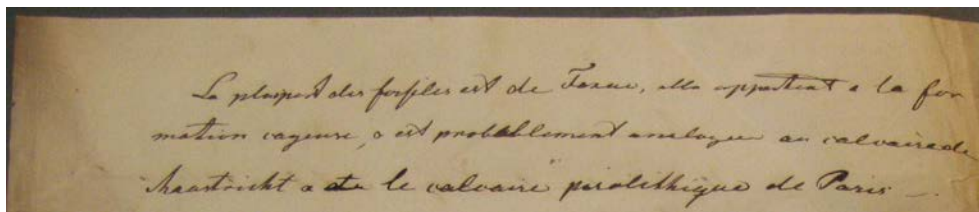 La pluspart des fossiles est de Faxue, elle appartient a la for
mation cageuse, o est probablement analogue au calvaire de
Maastricht a du le calvaire pisolithique de Paris